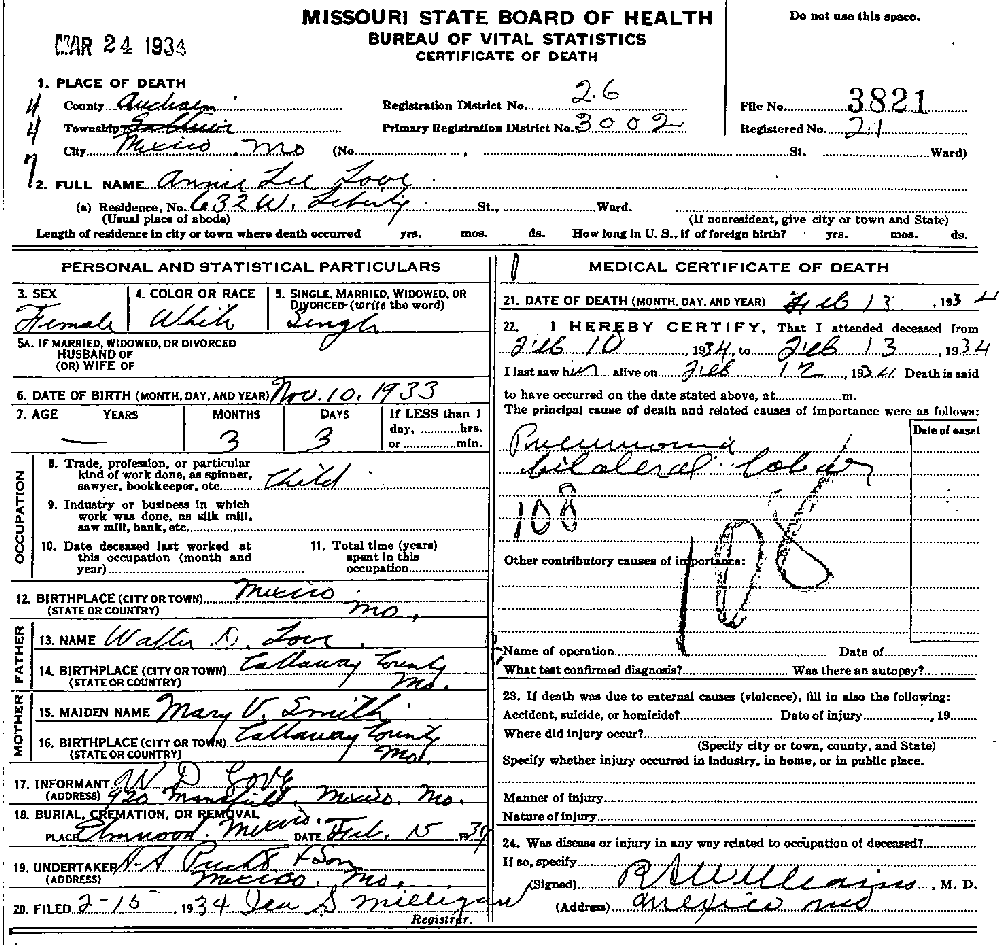 MISSOURI STATE BOARD OF HEALTH
BUREAU OF VITAL STATISTICS
CERTIFICATE OF DEATH
Do not use this space.
MAR 24 1934
1. PLACE OF DEATH
County Audrain Registration District No. 26 File No. 3821
Township Primary Registration District No. 3002 Registered No. 21
City Mexico, Mo (No. , St. Ward)
447
2. FULL NAME Annie Lee Love
(a) Residence, No. 632 W. Liberty St., Ward.
(Usual place of abode) (If nonresident, give city or town and State)
Length of residence in city or town where death occurred yrs. mos. ds. How long in U. S., if of foreign birth? yrs. mos. ds.
PERSONAL AND STATISTICAL PARTICULARS
3. SEX 4. COLOR OR RACE 5. SINGLE, MARRIED, WIDOWED, OR
DIVORCED (write the word)
Female White Single
5A. IF MARRIED, WIDOWED, OR DIVORCED
HUSBAND OF
(OR) WIFE OF
6. DATE OF BIRTH (MONTH, DAY, AND YEAR) Nov. 10, 1933
7. AGE YEARS MONTHS DAYS If LESS than 1
day, hrs.
or min.
— 3 3
OCCUPATION
8. Trade, profession, or particular
kind of work done, as spinner,
sawyer, bookkeeper, etc. Child
9. Industry or business in which
work was done, as silk mill,
saw mill, bank, etc.
10. Date deceased last worked at
this occupation (month and
year)
11. Total time (years)
spent in this
occupation
12. BIRTHPLACE (CITY OR TOWN) Mexico
(STATE OR COUNTRY) Mo.
FATHER
13. NAME Walter D. Love
14. BIRTHPLACE (CITY OR TOWN) Callaway County
(STATE OR COUNTRY) Mo.
MOTHER
15. MAIDEN NAME Mary V. Smith
16. BIRTHPLACE (CITY OR TOWN) Callaway County
(STATE OR COUNTRY) Mo.
17. INFORMANT W D Love
(ADDRESS) 920 Mexico, Mo.
18. BURIAL, CREMATION, OR REMOVAL
PLACE Elmwood, Mexico DATE Feb. 15 1934
19. UNDERTAKER & Son
(ADDRESS) Mexico, Mo.
20. FILED 2-15 1934 Milligan
Registrar.
MEDICAL CERTIFICATE OF DEATH
21. DATE OF DEATH (MONTH, DAY, AND YEAR) Feb 13, 1934
22. I HEREBY CERTIFY, That I attended deceased from
Feb 10, 1934, to Feb 13, 1934
I last saw her alive on Feb 12, 1934 Death is said
to have occurred on the date stated above, at m.
The principal cause of death and related causes of importance were as follows:
Date of onset
Pneumonia
bilateral lobar
108
108
Other contributory causes of importance:
Name of operation Date of
What test confirmed diagnosis? Was there an autopsy?
23. If death was due to external causes (violence), fill in also the following:
Accident, suicide, or homicide? Date of injury , 19
Where did injury occur?
(Specify city or town, county, and State)
Specify whether injury occurred in industry, in home, or in public place.
Manner of injury
Nature of injury
24. Was disease or injury in any way related to occupation of deceased?
If so, specify
(Signed) R S Williams, M. D.
(Address) Mexico Mo